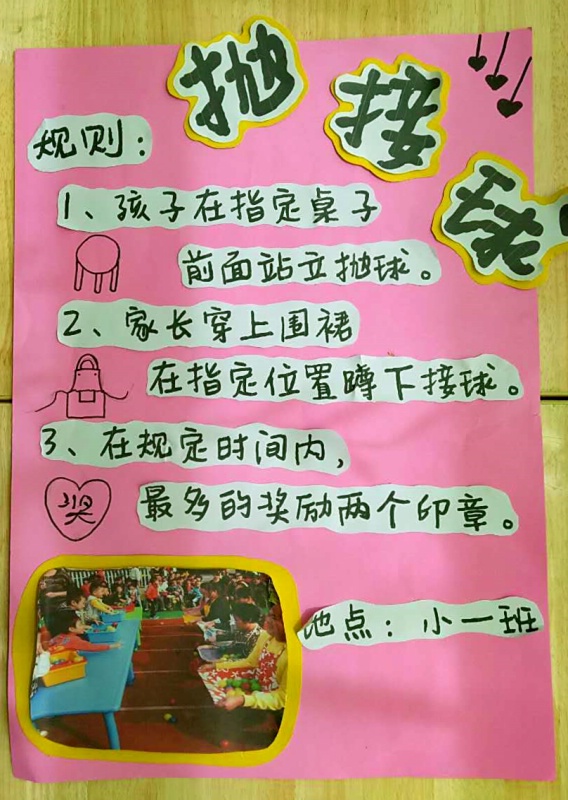 抛接球
规则：
1、孩子在指定桌子
前面站立抛球。
2、家长穿上围裙
在指定位置蹲下接球。
3、在规定时间内，
奖
最多的奖励两个印章。
地点：小一班